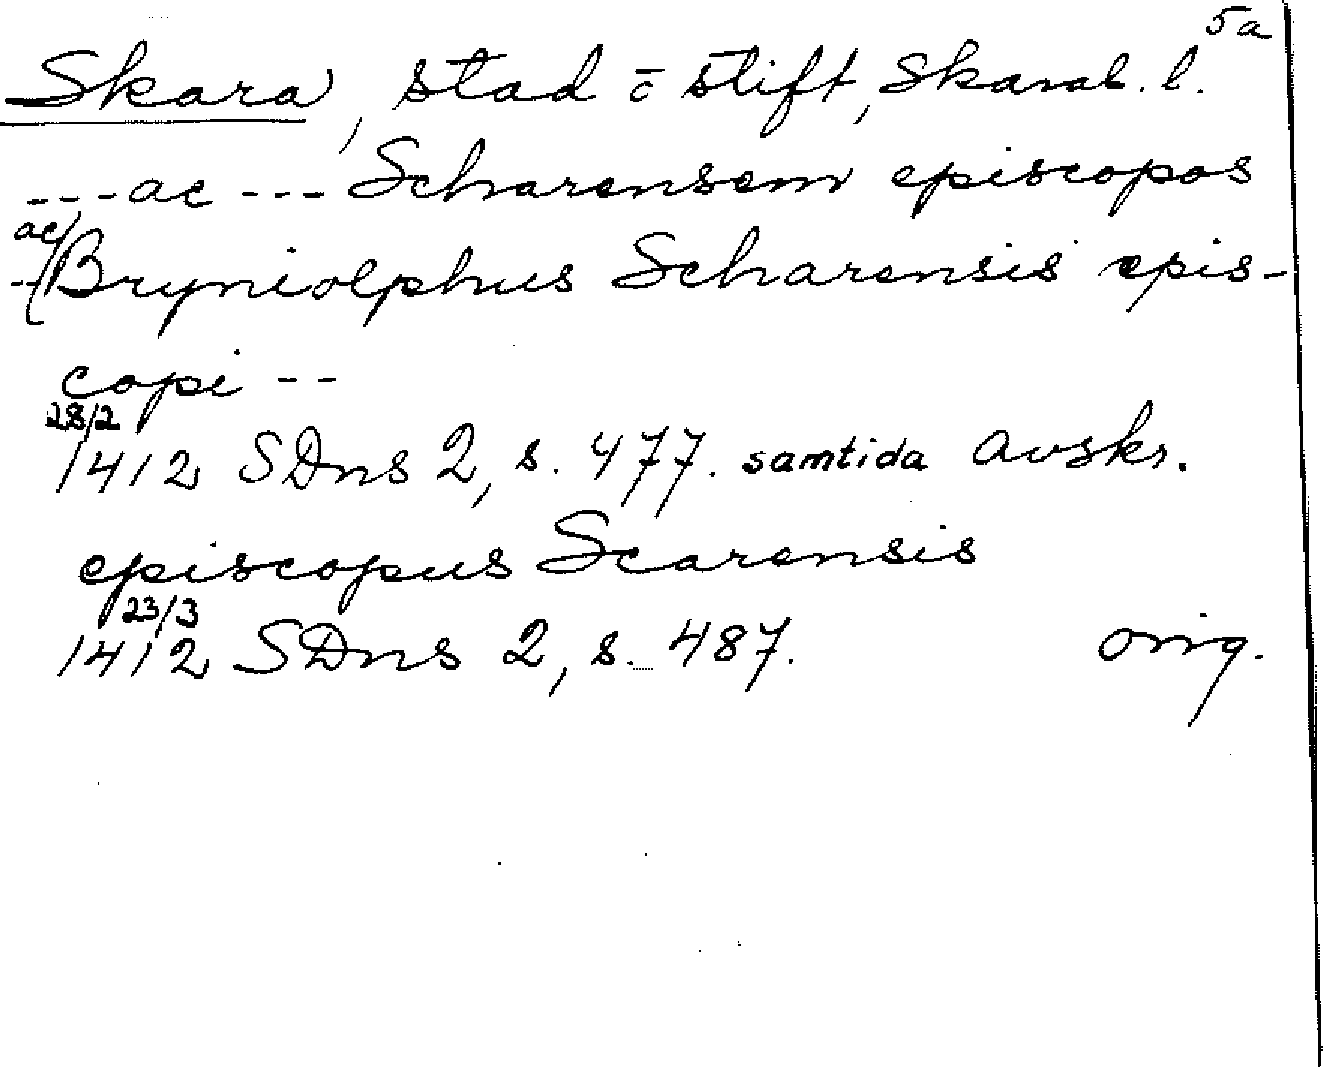 5a
Skara, stad o stift, Skarab. l.
--- ac --- Scharensem episcopos
-- ac Bryniolphus Scharensis epis-
copi --
28/2
1412 SDns 2, s. 477. samtida Avskr.
episcopus Scarensis
23/3
1412 SDns 2, s. 487. orig.